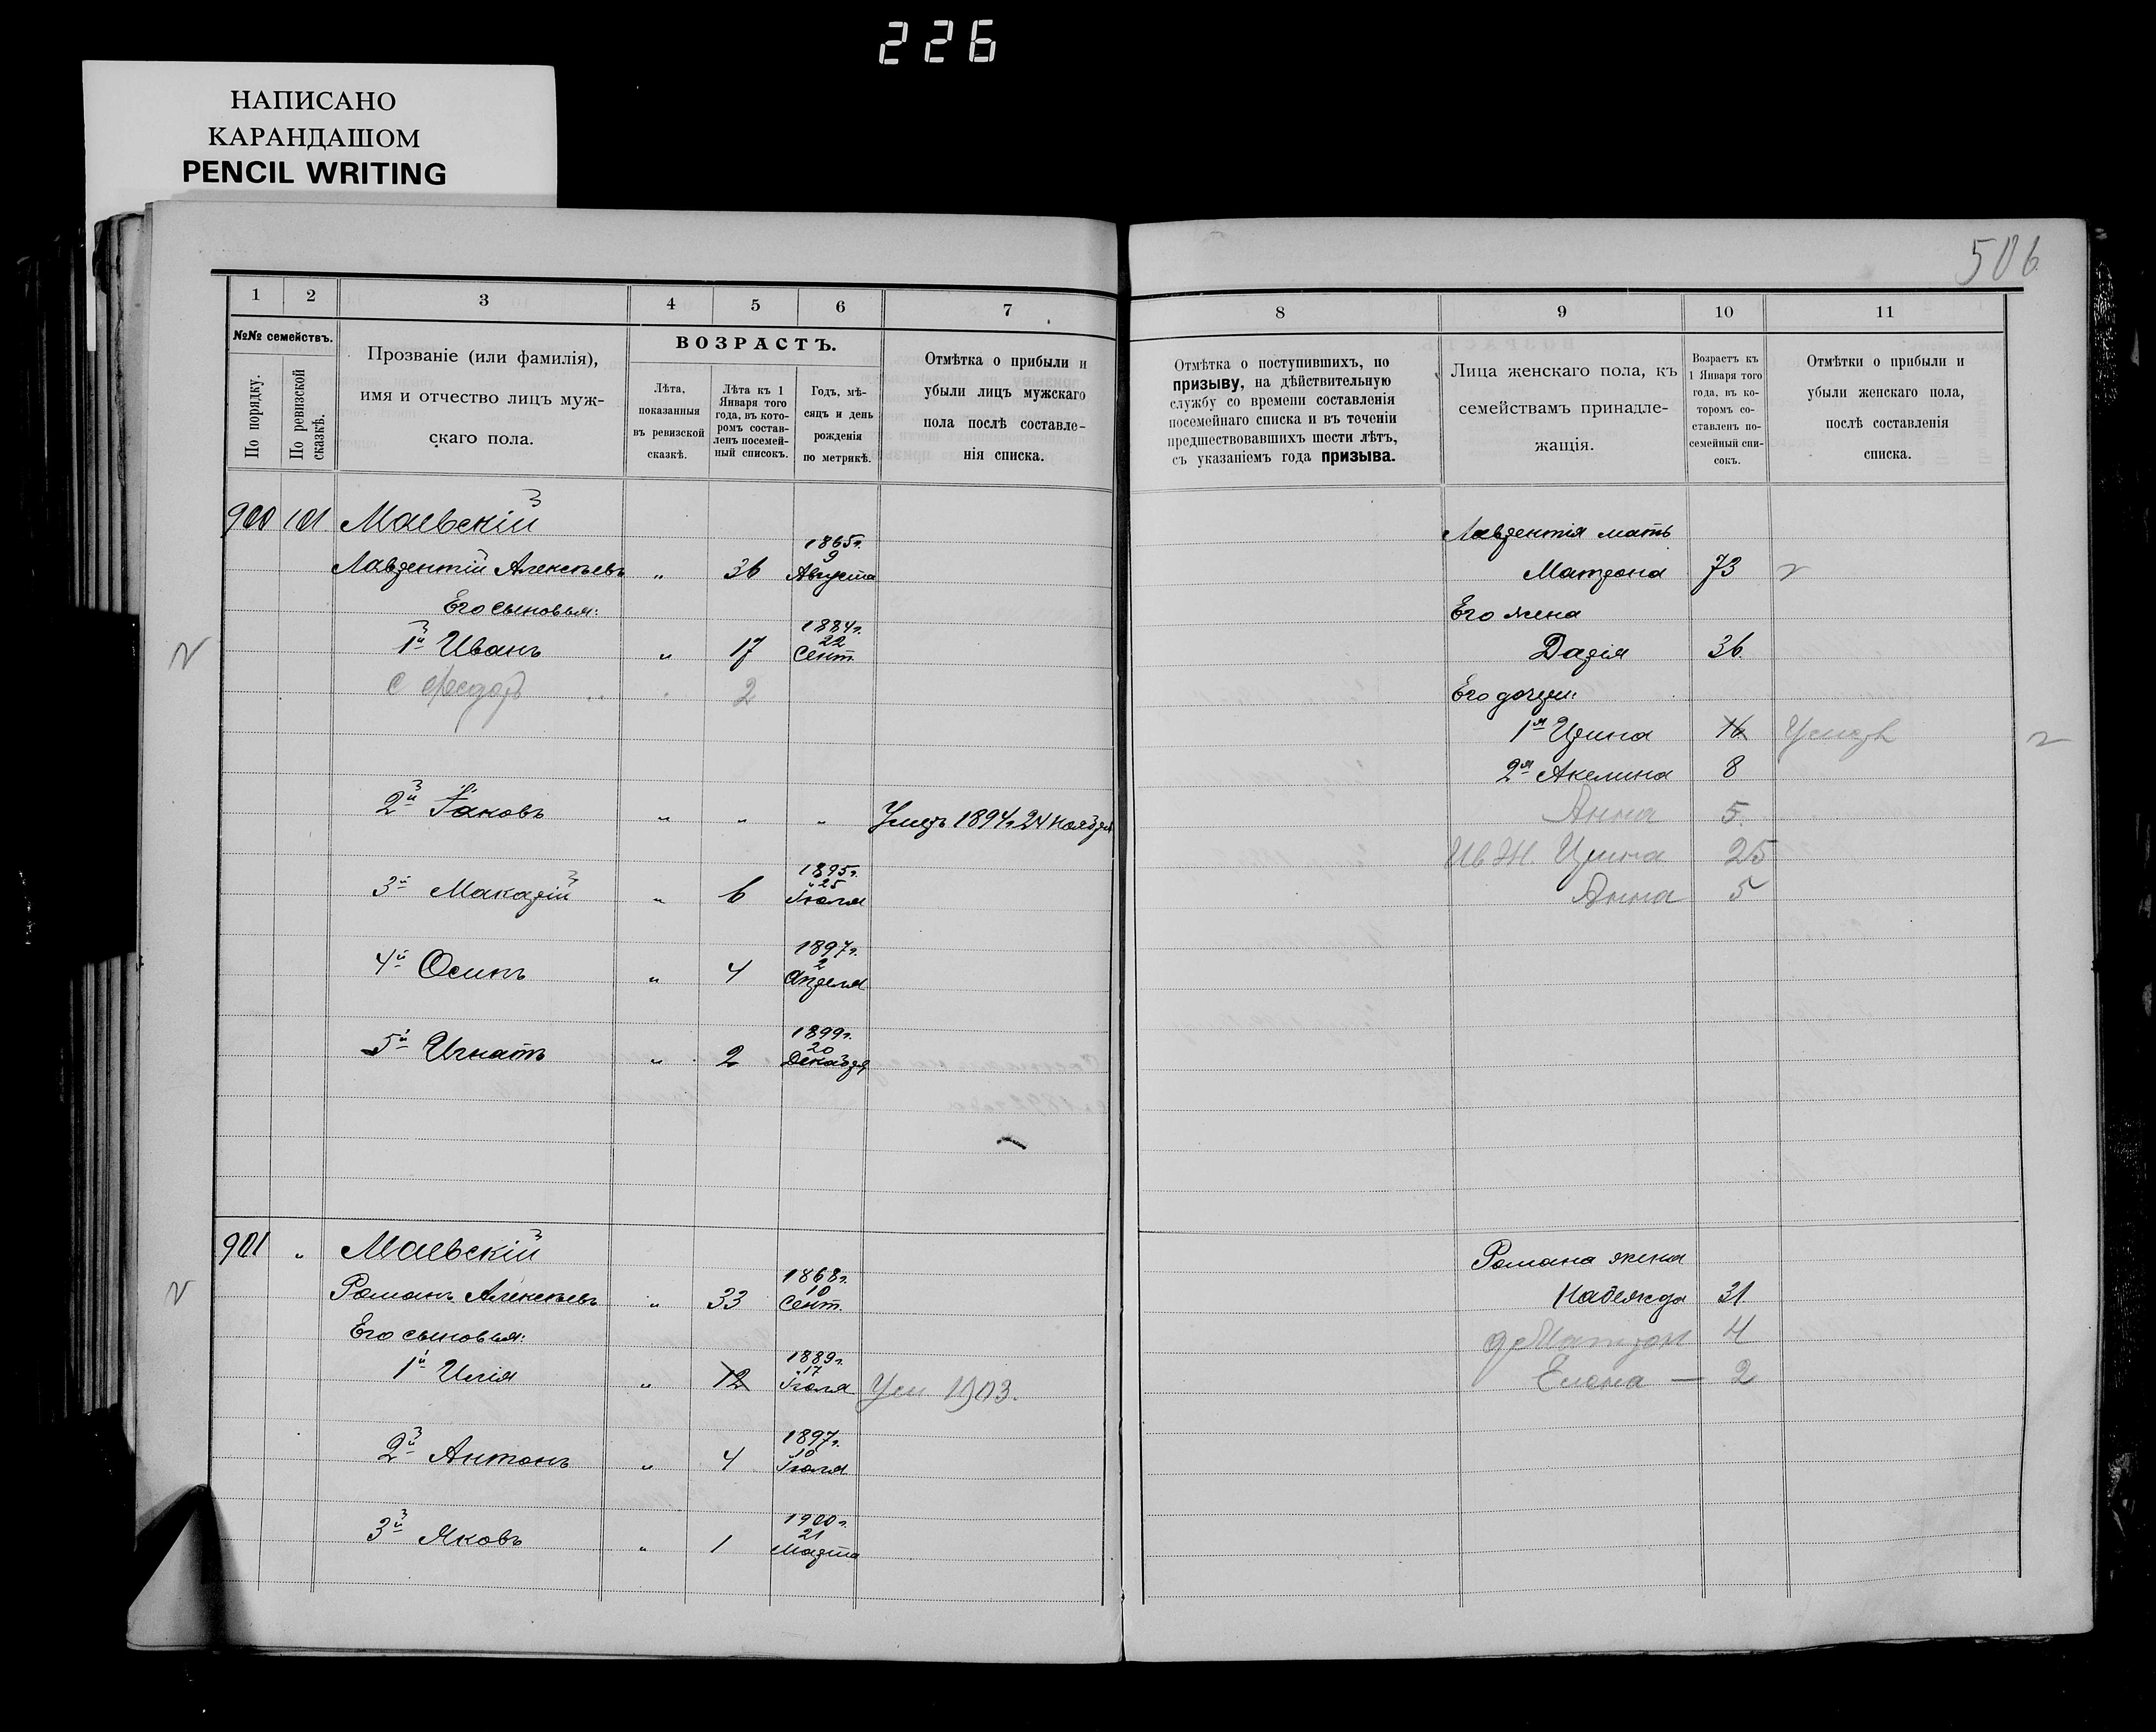 226
НАПИСАНО
КАРАНДАШОМ
PENCIL WRITING
506
1 2 3 4 5 6 7
№№ семействъ.
По порядку.
По ревизской сказкѣ.
Прозваніе (или фамилія),
имя и отчество лицъ муж-
скаго пола.
ВОЗРАСТЪ.
Лѣта,
показанныя
въ ревизской
сказкѣ.
Лѣта къ 1
Января того
года, въ кото-
ромъ состав-
ленъ посемей-
ный списокъ.
Годъ, мѣ-
сяцъ и день
рожденія
по метрикѣ.
Отмѣтка о прибыли и
убыли лицъ мужскаго
пола послѣ составле-
нія списка.
900 101 Маевскій
Лаврентій Алексѣевъ " 36 1865г. 9 Августа
Его сыновья:
1й Иванъ " 17 1884г. 22 Сент.
с Федоръ 2
2й Іаковъ " " " Умеръ 1894г. 24 Ноября
3й Макарій " 6 1895г. 25 Іюля
4й Осипъ " 4 1897г. 2 Апреля
5й Игнатъ " 2 1899г. 20 Декабря
901 " Маевскій
Романъ Алексѣевъ " 33 1868г. 10 Сент.
Его сыновья:
1й Илія " 12 1889г. 17 Іюля Ум 1903.
2й Антонъ " 4 1897г. 10 Іюля
3й Яковъ " 1 1900г. 21 Марта
8 9 10 11
Отмѣтка о поступившихъ, по
призыву, на дѣйствительную
службу со времени составленія
посемейнаго списка и въ теченіи
предшествовавшихъ шести лѣтъ,
съ указаніемъ года призыва.
Лица женскаго пола, къ
семействамъ принадле-
жащія.
Возрастъ къ
1 Января того
года, въ ко-
торомъ со-
ставленъ по-
семейный спи-
сокъ.
Отмѣтки о прибыли и
убыли женскаго пола,
послѣ составленія
списка.
Лаврентія мать
Матрона 73
Его жена
Дарія 36.
Его дочери:
1я Ирина 16 Умерл
2я Акелина 8
Анна 5.
Ив Ж. Ирина 25
Анна 5
Романа жена
Надежда 31
д Матрон 4
Елена — 2